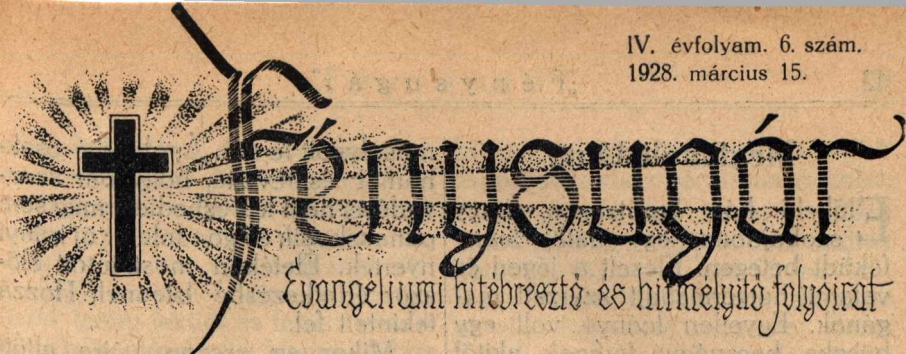 IV. évfolyam. 6. szám.
1928. március 15.
Fénysugár
Evangéliumi hitébresztő és hitmélyítő folyóirat